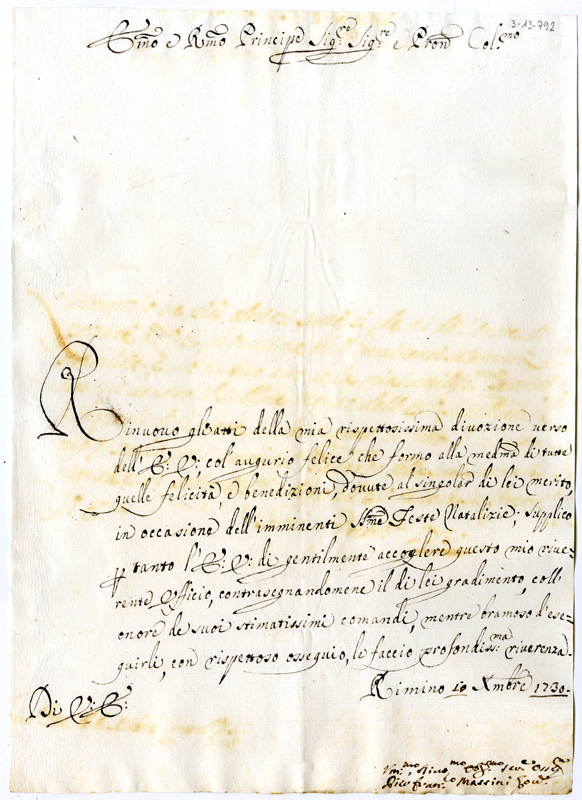 3-13-792
Emo e Rmo Principe Sigre Sigre e Pron Colmo
Rinuovo gl'atti della mia rispettosissima divozione verso
dell' E: V: col' augurio felice che formo alla medma di tutte
quelle felicità, e benedizioni, dovute al singolar di lei merito,
in occasione dell'imminenti SSme Feste Natalizie; supplico
ꝑ tanto l'E: V: di gentilmente accogliere questo mio rive=
rente Officio, contrasegnandomene il di lei gradimento, coll'
onore de suoi stimatissimi comandi, mentre bramoso d'ese=
guirli, con rispettoso ossequio, le faccio profondissma riverenza.
Rimino 10 Xmbre 1730.
Di V: E:
Vmmo, Divmo, Oblmo serre Osseq
Massini Gove